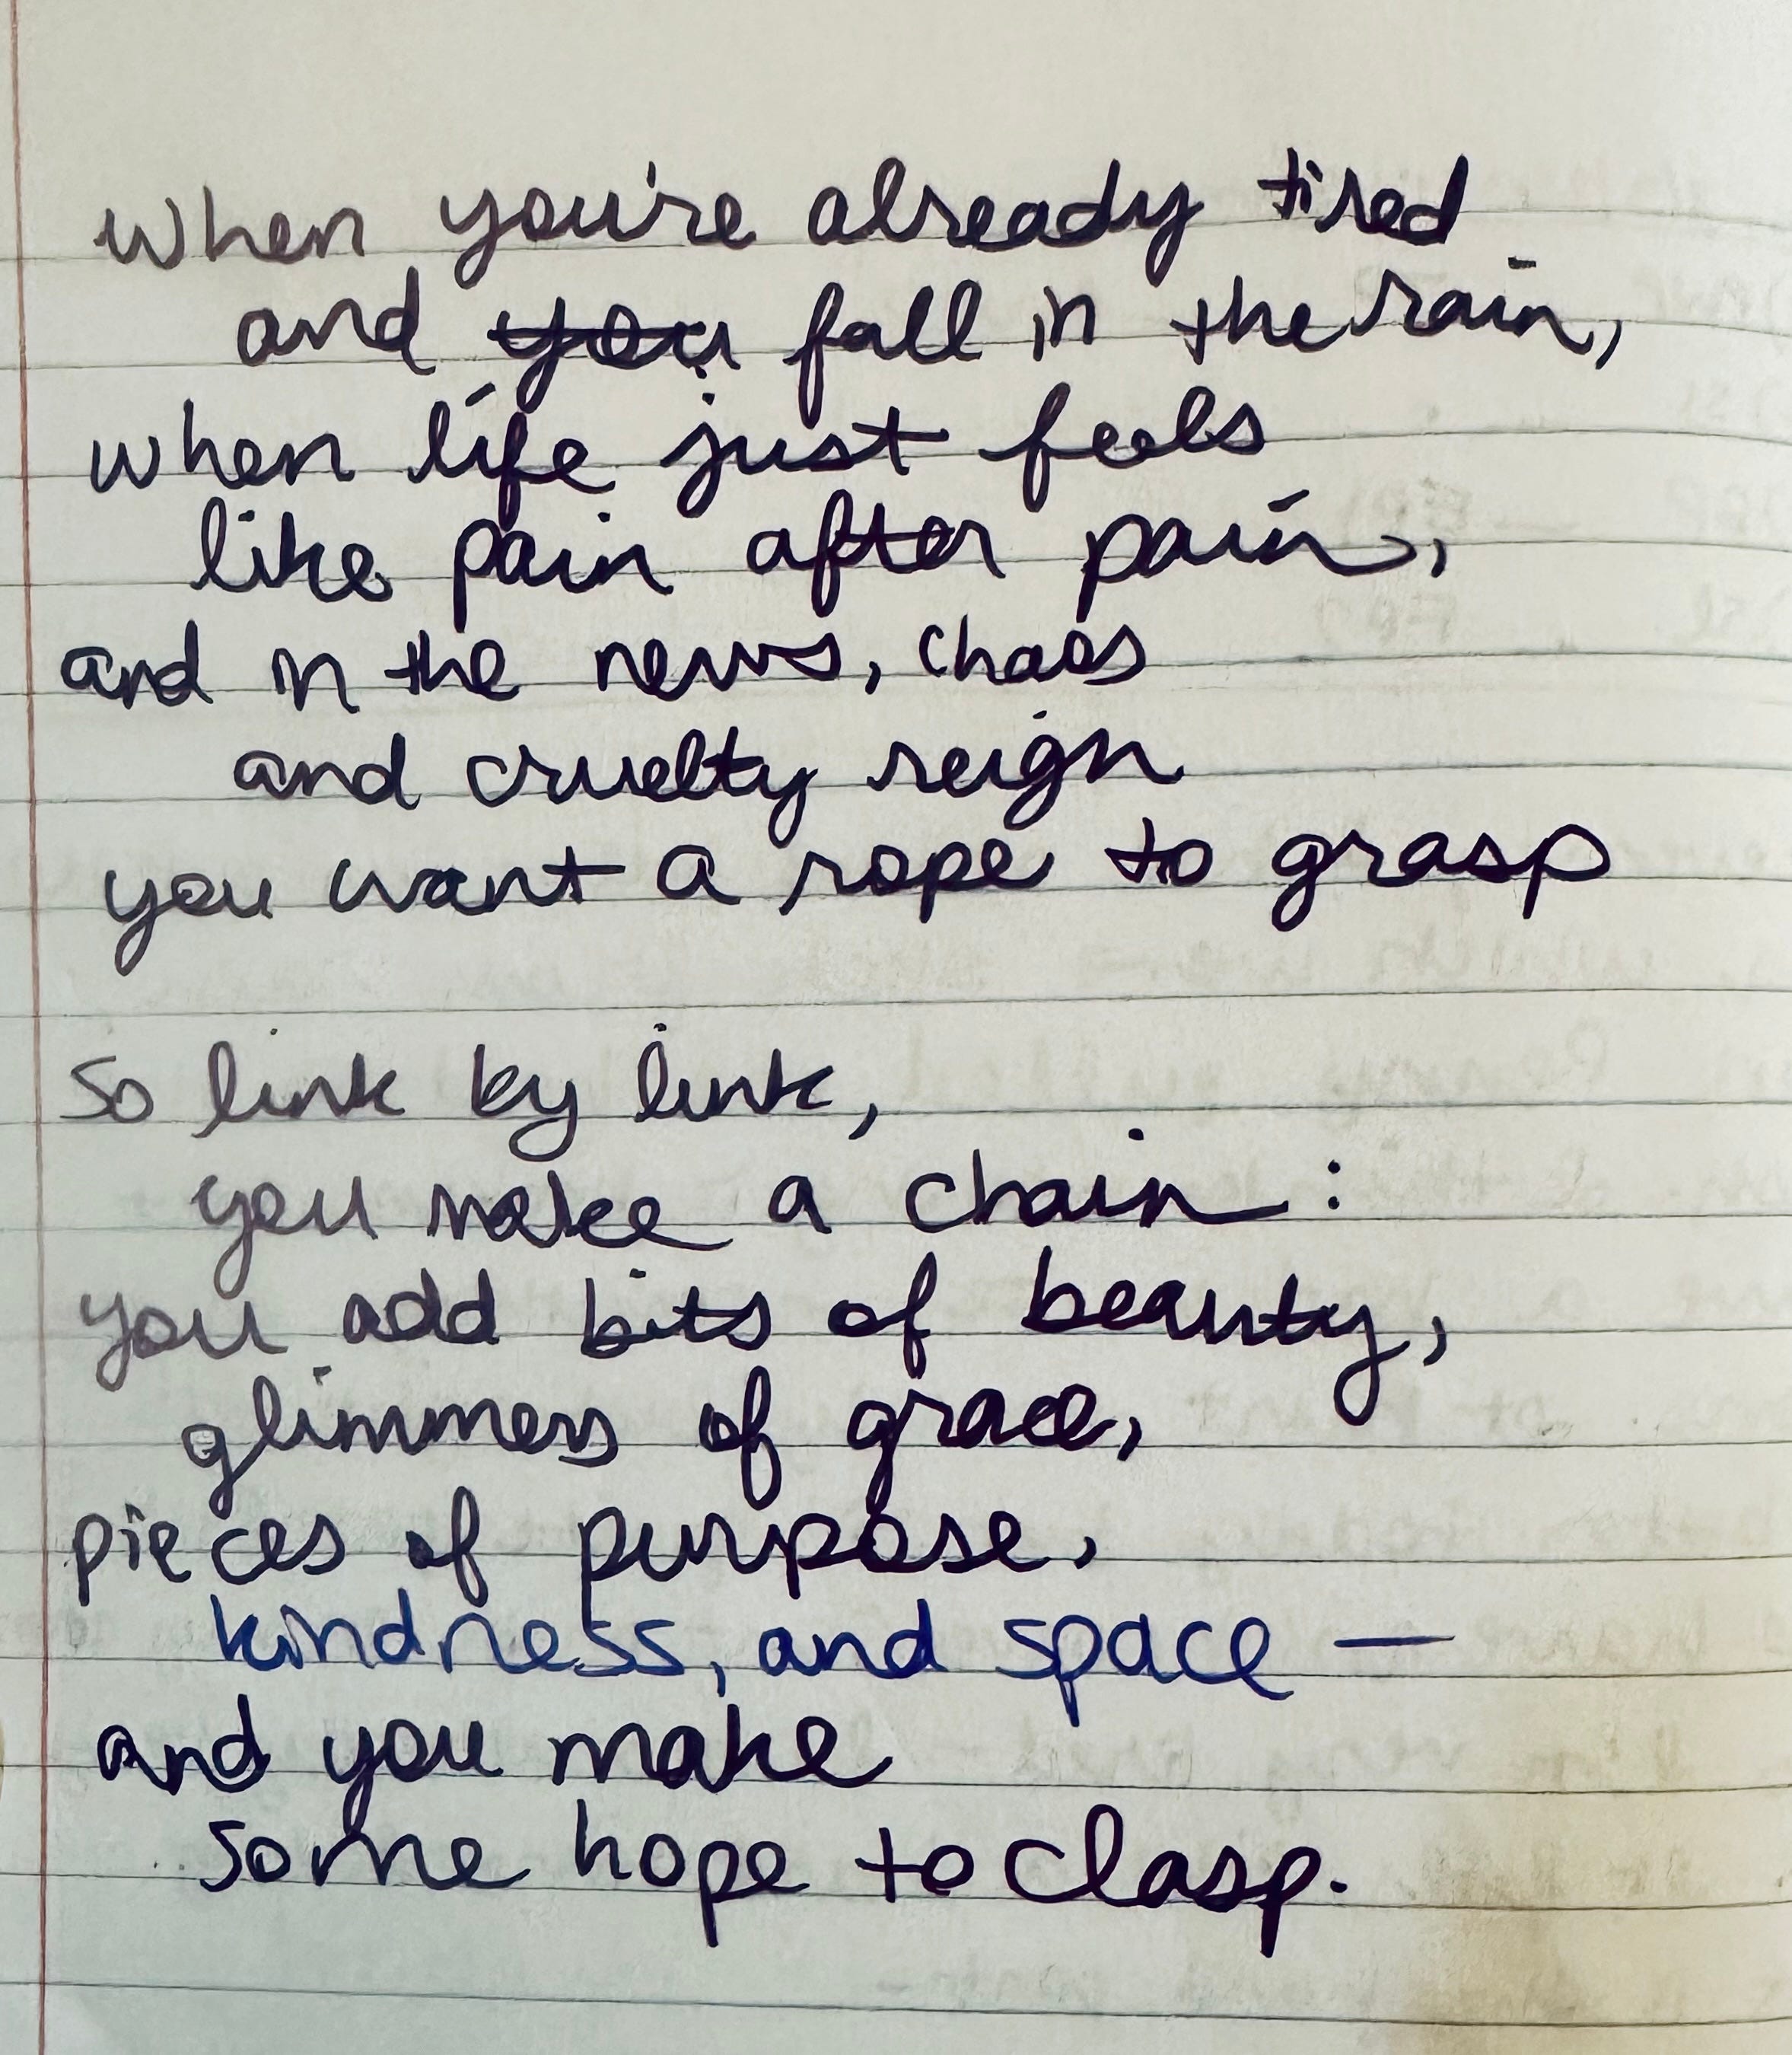 when you're already tired
and you fall in the rain,
when life just feels
like pain after pain,
and in the news, chaos
and cruelty reign
you want a rope to grasp
so link by link,
you make a chain:
you add bits of beauty,
glimmers of grace,
pieces of purpose,
kindness, and space —
and you make
some hope to clasp.